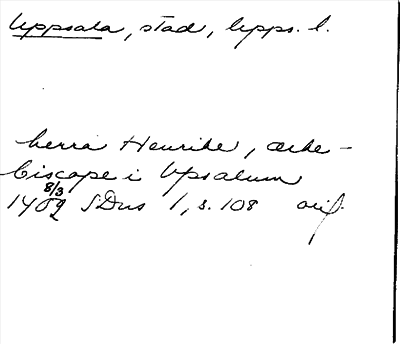 Uppsala, stad, Upps. l.
herra Henrike, ærke-
biscope i Vpsalum
8/3
1402 SDns 1, s. 108 orig.